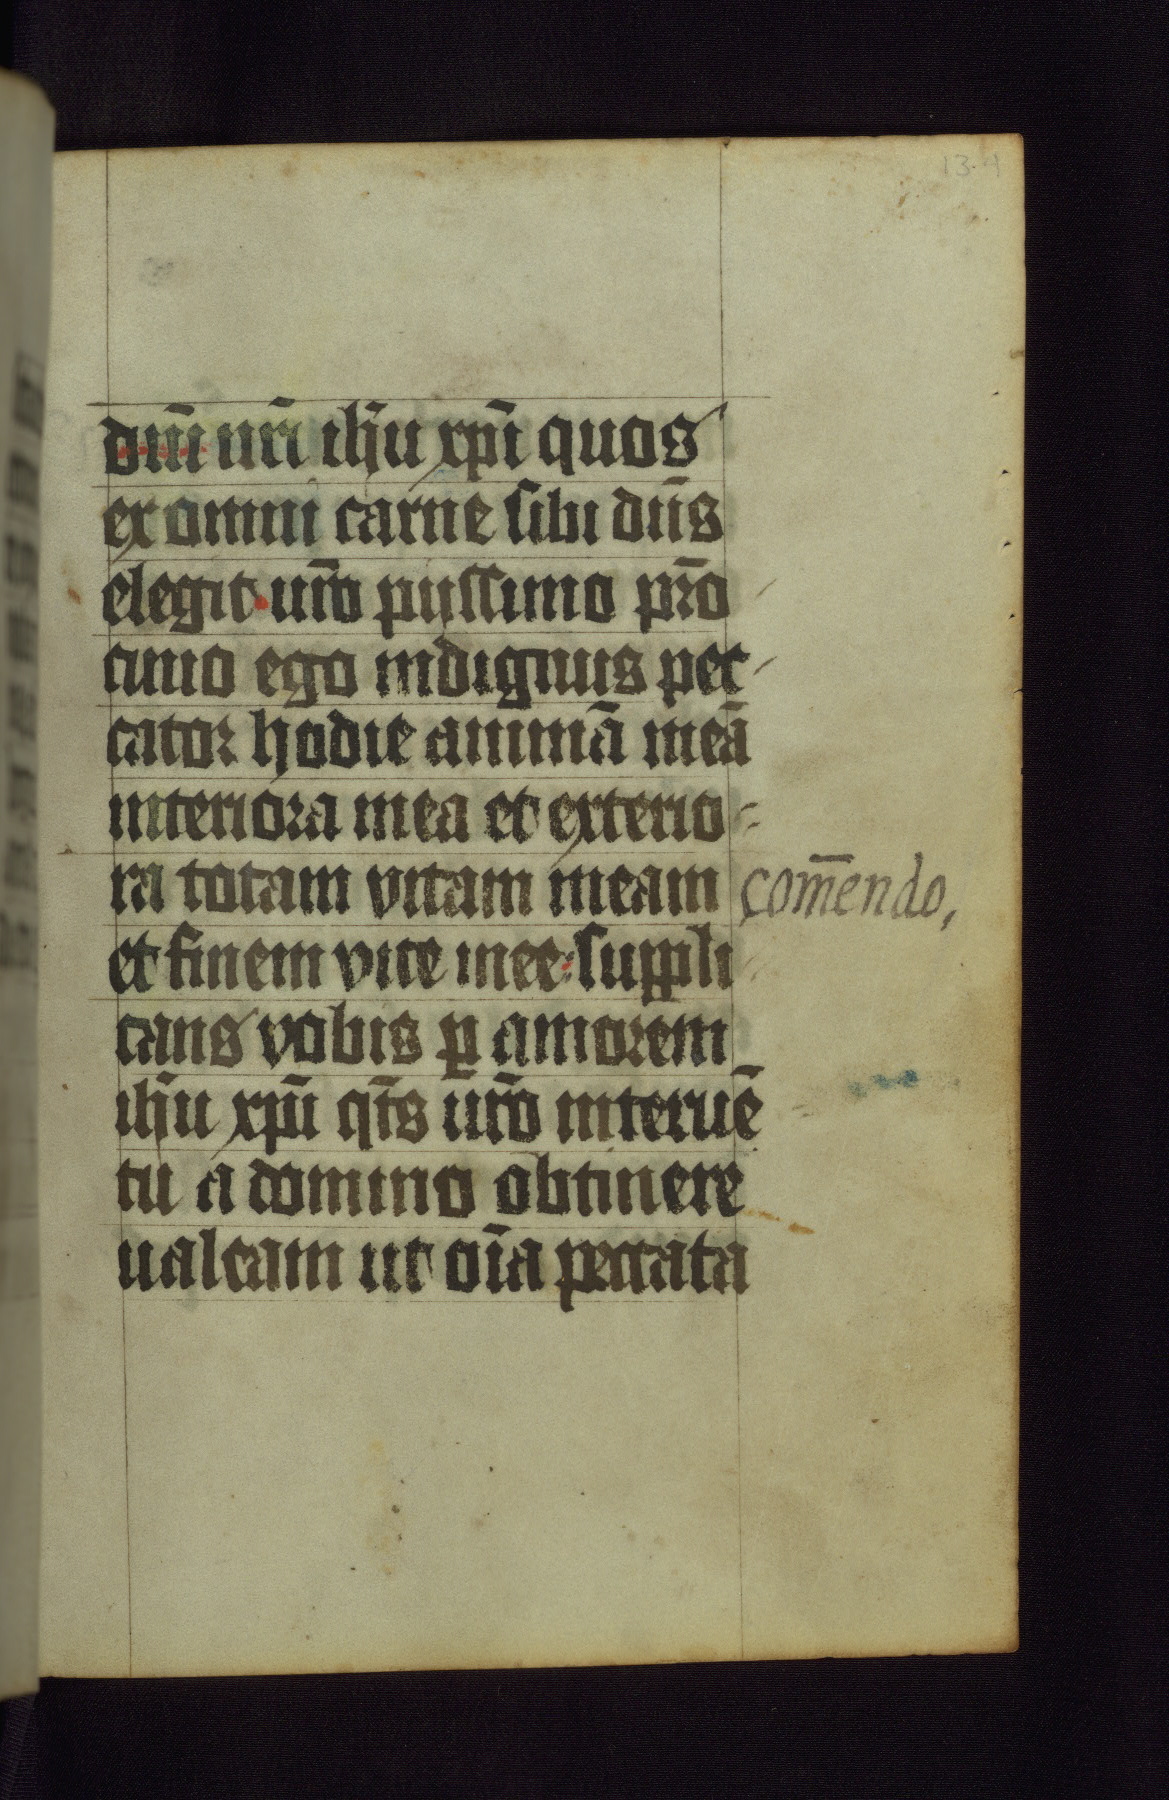 134
dn̄i nr̄i ih̄u xp̄i quos
ex omni carne sibi dn̄s
elegit. ur̄o pijssimo pr̄o
cinio ego indignus pec
cator hodie animā meā
interiora mea et exterio=
ra totam vitam meam com̄endo,
et finem vite mee: suppli
cans vobis ꝑ amorem
ih̄u xp̄i qt̄s ur̄o interuē
tu a domino obtinere
ualeam ut oīa peccata